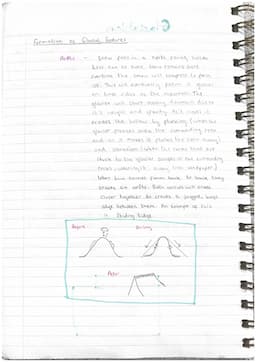 Glaciation
Formation of Glacial Features
Arête - Snow falls in a north facing hollow
over time the snow will compress to form
ice. This will eventually form a glacier
on both sides of the mountain. The
glacier will start moving downhill due to
it's weight and gravity. As it moves it
erodes the hollow by plucking (when the
glacier freezes onto the surrounding rock
and as it moves it plucks the rock away)
and abrasion (when the rocks that are
stuck to the glacier scrape at the surrounding
rocks wearing it away like sandpaper)
When two corries form back to back they
create an arête. Both corries will erode
closer together to create a jagged knife
edge between them. An example of this
is Striding Edge.
Before
During
After